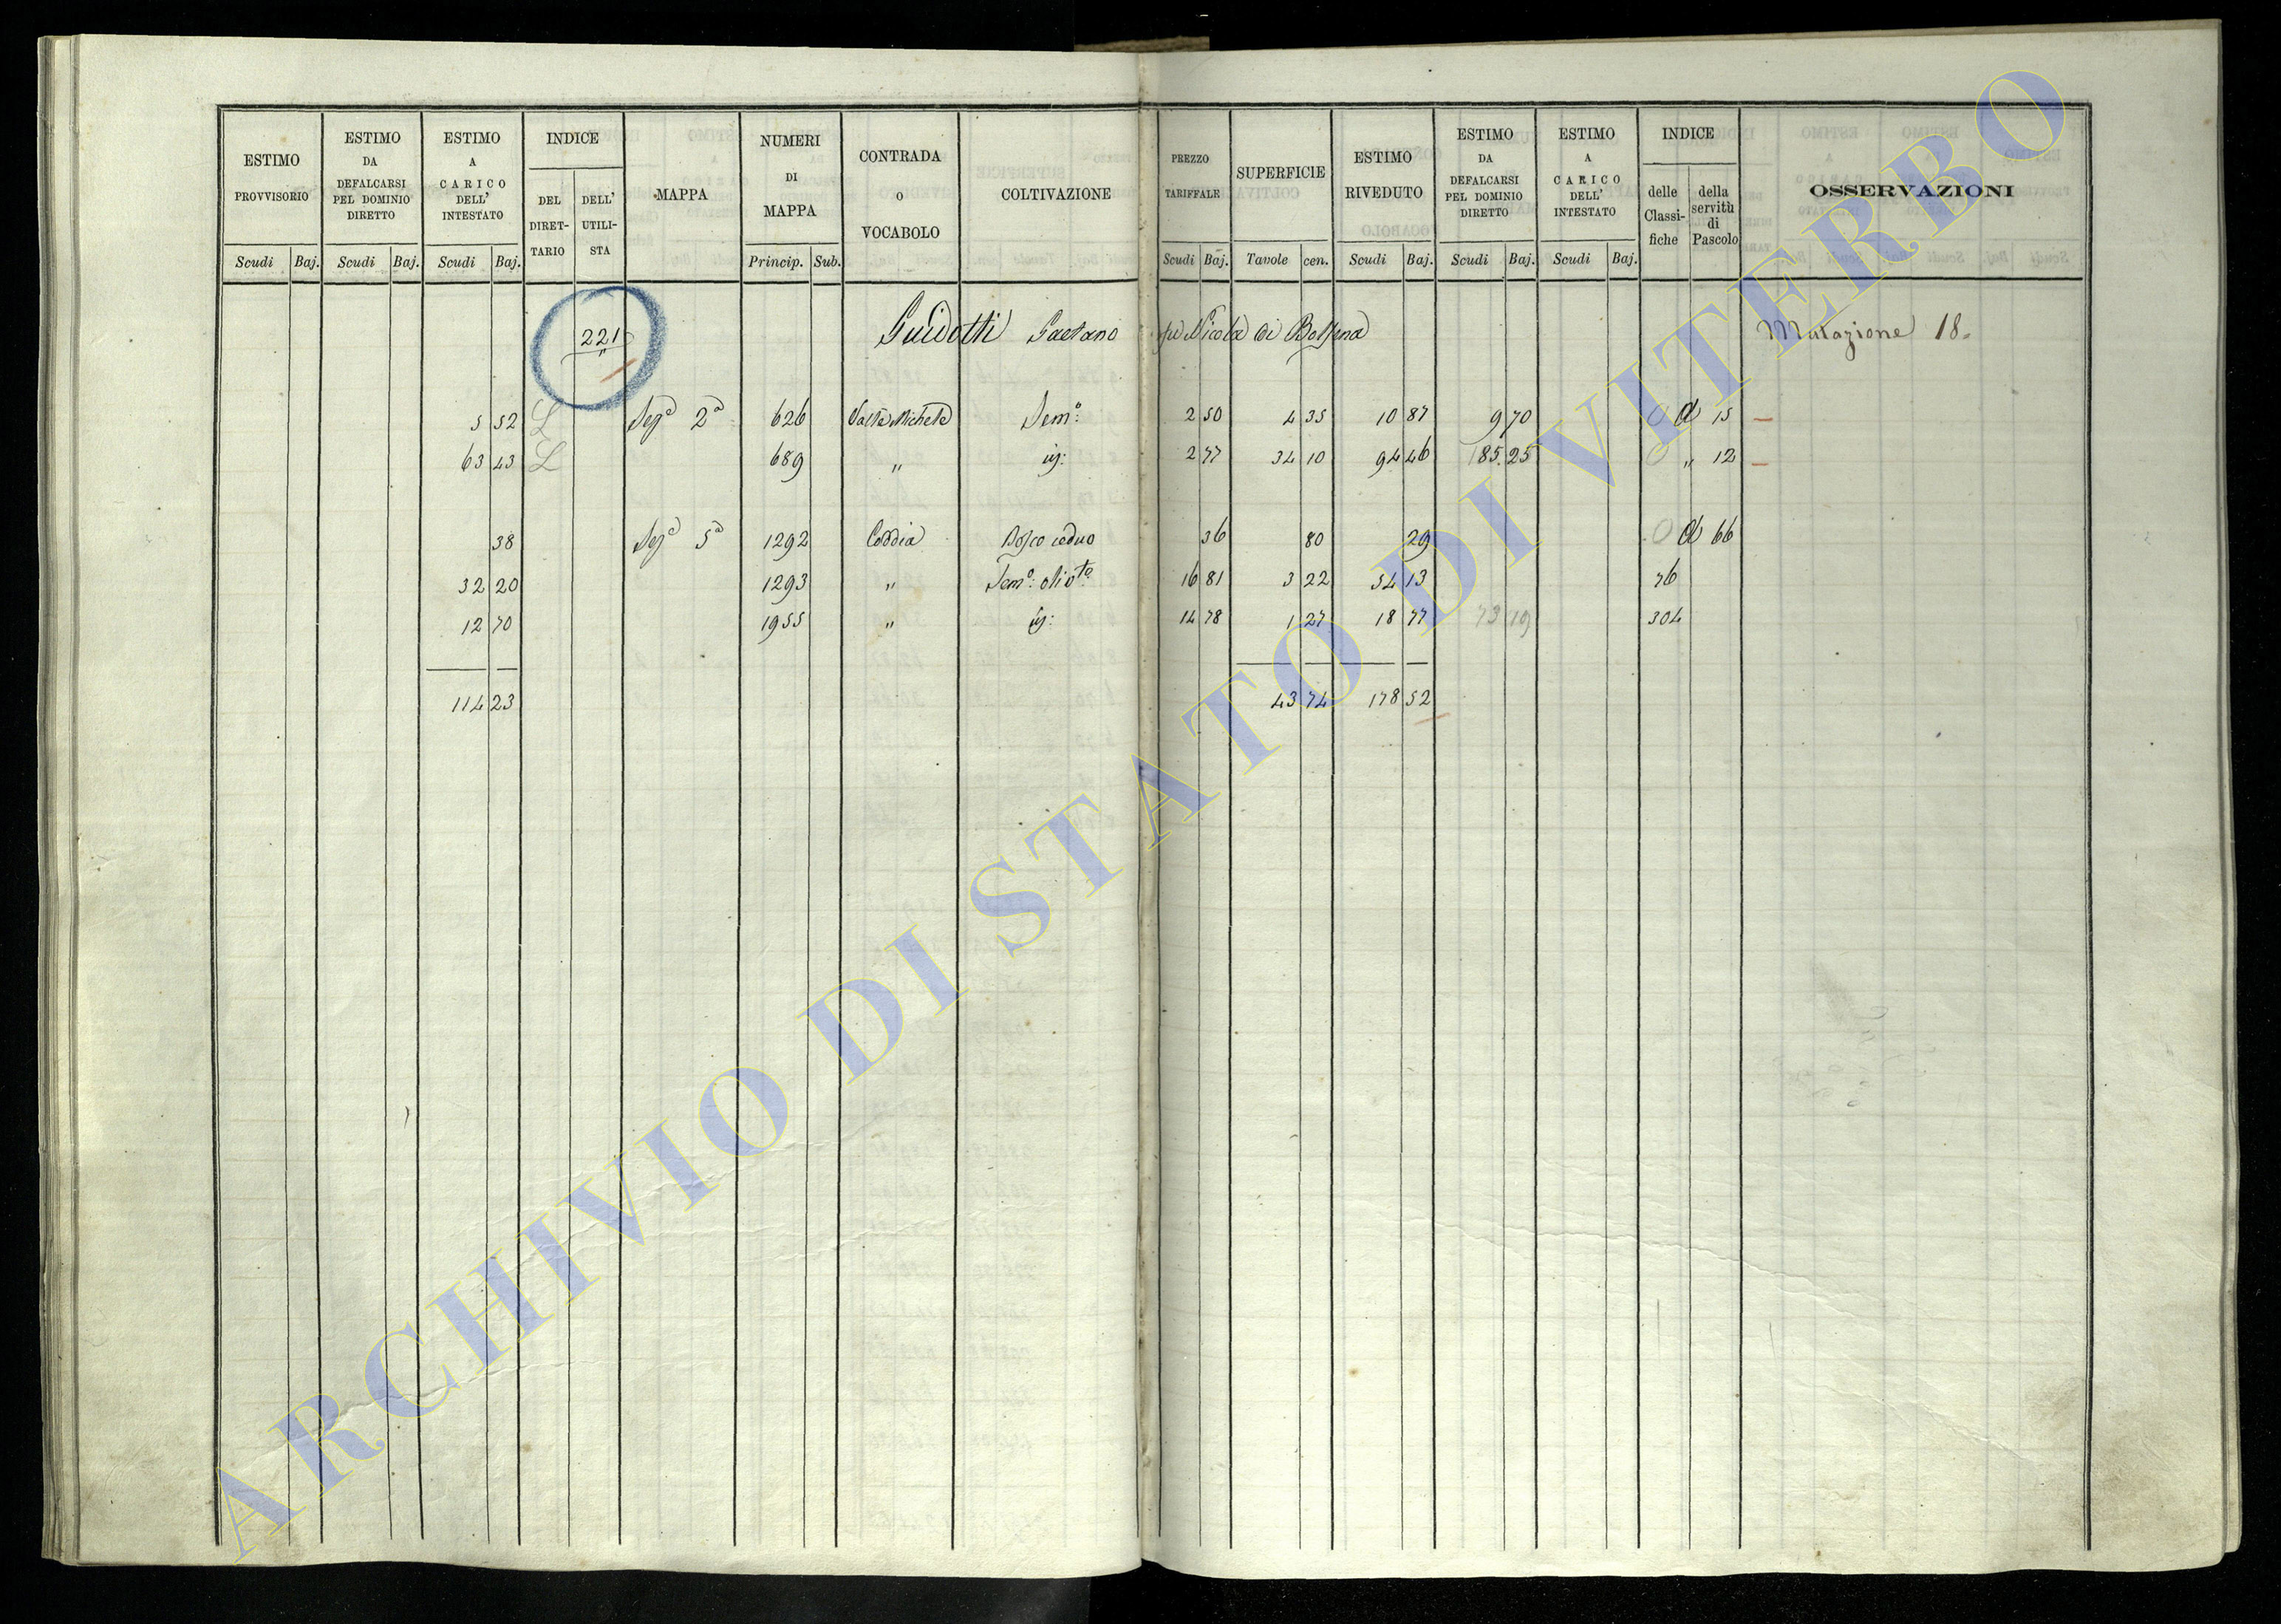 ESTIMO PROVVISORIO
ESTIMO DA DEFALCARSI PEL DOMINIO DIRETTO
ESTIMO A CARICO DELL' INTESTATO
INDICE
DEL DIRET-TARIO
DELL' UTILI-STA
MAPPA
NUMERI DI MAPPA
CONTRADA O VOCABOLO
COLTIVAZIONE
PREZZO TARIFFALE
SUPERFICIE
ESTIMO RIVEDUTO
ESTIMO DA DEFALCARSI PEL DOMINIO DIRETTO
ESTIMO A CARICO DELL' INTESTATO
INDICE
delle Classi-fiche
della servitù di Pascolo
OSSERVAZIONI
Scudi Baj. Scudi Baj. Scudi Baj. Princip. Sub. Scudi Baj. Tavole cen. Scudi Baj. Scudi Baj. Scudi Baj.
221 Guidotti Gaetano fu Nicola di Bolsena Mutazione 18.
5 52 L Sez.a 2a 626 Valle Michele Sem.o: 2 50 4 35 10 87 9 70 0 d 15
63 43 L 689 " id: 2 77 34 10 94 46 185.25 0 " 12
38 Sez.a 5a 1292 Coddia Bosco ceduo 36 80 29 0 d 66
32 20 1293 " Sem.o: oliv.to 16 81 3 22 54 13 76
12 70 1955 " id: 14 78 1 27 18 77 73 19 304
114 23 43 74 178 52
ARCHIVIO DI STATO DI VITERBO